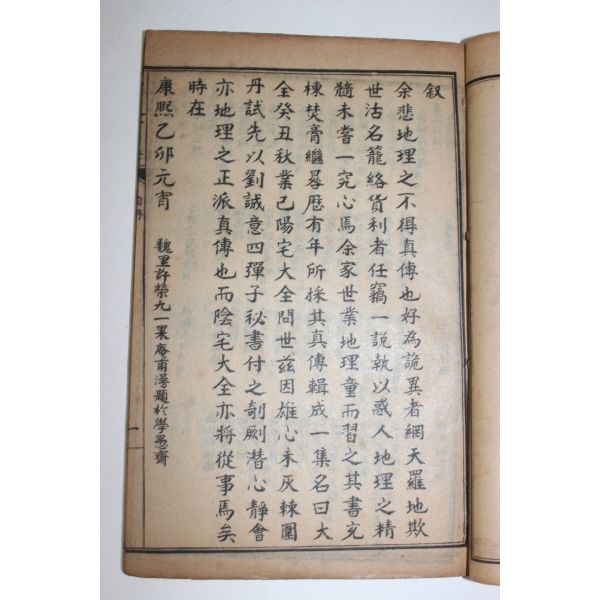 叙
余悲地理之不得真傳也好為詭異者網天羅地欺
世沽名籠絡貨利者任竊一說執以惑人地理之精
髓未嘗一究心焉余家世業地理童而習之其書充
棟焚膏繼晷歷有年所採其真傳輯成一集名曰大
全癸丑秋業已陽宅大全問世茲因雄心未灰棘圍
丹試先以劉誠意四彈子秘書付之剞劂潛心靜會
亦地理之正派真傳也而陰宅大全亦將從事焉矣
時在
康熙乙卯元宵
魏里許榮九一果菴甫漫題於學愚齋
一